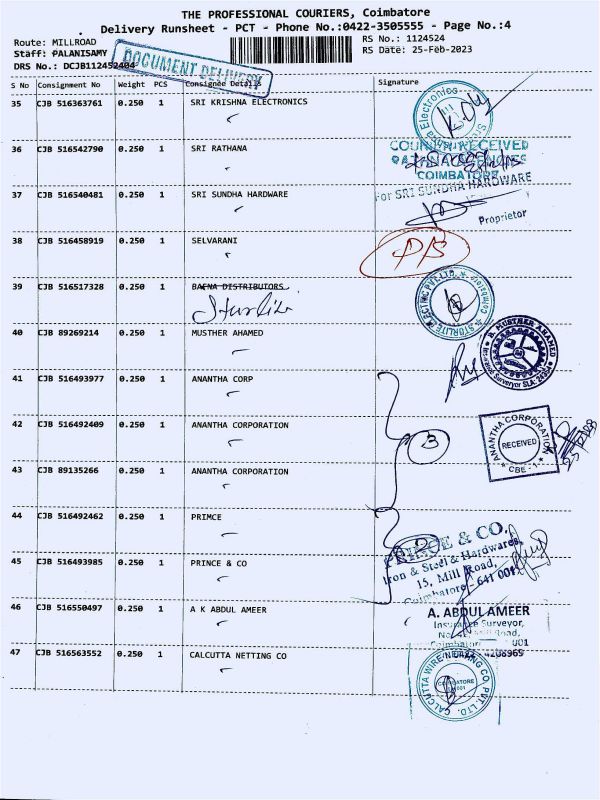 THE PROFESSIONAL COURIERS, Coimbatore
Delivery Runsheet - PCT - Phone No.:0422-3505555 - Page No.:4
Route: MILLROAD
RS No.: 1124524
Staff: PALANISAMY
RS Date: 25-Feb-2023
DRS No.: DCJB112452404
DOCUMENT DELIVERY
S No Consignment No Weight PCS Consignee Details Signature
35 CJB 516363761 0.250 1 SRI KRISHNA ELECTRONICS
Electronics
36 CJB 516542790 0.250 1 SRI RATHANA
COUNTER RECEIVED
COIMBATORE
37 CJB 516540481 0.250 1 SRI SUNDHA HARDWARE
For SRI SUNDHA HARDWARE
Proprietor
38 CJB 516458919 0.250 1 SELVARANI
39 CJB 516517328 0.250 1 BAFNA DISTRIBUTORS
Sturlite
STORLITE ELECTRIC PVT LTD. Coimbatore
40 CJB 89269214 0.250 1 MUSTHER AHAMED
MUSTHER AHAMED
41 CJB 516493977 0.250 1 ANANTHA CORP
42 CJB 516492409 0.250 1 ANANTHA CORPORATION
3
ANANTHA CORPORATION
RECEIVED
* CBE - 1 *
43 CJB 89135266 0.250 1 ANANTHA CORPORATION
44 CJB 516492462 0.250 1 PRIMCE
PRINCE & CO.
Iron & Steel & Hardwares,
15, Mill Road,
Coimbatore - 641 001.
45 CJB 516493985 0.250 1 PRINCE & CO
46 CJB 516550497 0.250 1 A K ABDUL AMEER
A. ABDUL AMEER
Insurance Surveyor,
47 CJB 516563552 0.250 1 CALCUTTA NETTING CO
CALCUTTA WIRE NETTING CO. PVT. LTD.